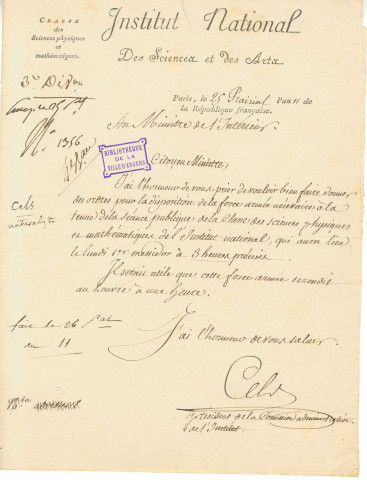 Classe
des
Sciences physiques
et
mathématiques.
Institut National
Des Sciences et des Arts
Paris, le 25 Prairial l'an 11 de
la République française.
Au Ministre de l'Intérieur
3e
No 1356
BIBLIOTHÈQUE
DE LA
VILLE D'ANGERS
Citoyen Ministre,
J'ai l'honneur de vous prier de vouloir bien faire donner
des ordres pour la disposition de la force armée nécessaire à la
tenue de la séance publique de la Classe des sciences physiques
et mathématiques de l'Institut national, qui aura lieu
le lundi 1er messidor à 3 heures précises.
Il serait utile que cette force armée se rendit
au louvre à une heure.
Cels
naturaliste
fait le 26 Pal
an 11
J'ai l'honneur de vous saluer.
Cels
président de la Commission administrative
de l'Institut.